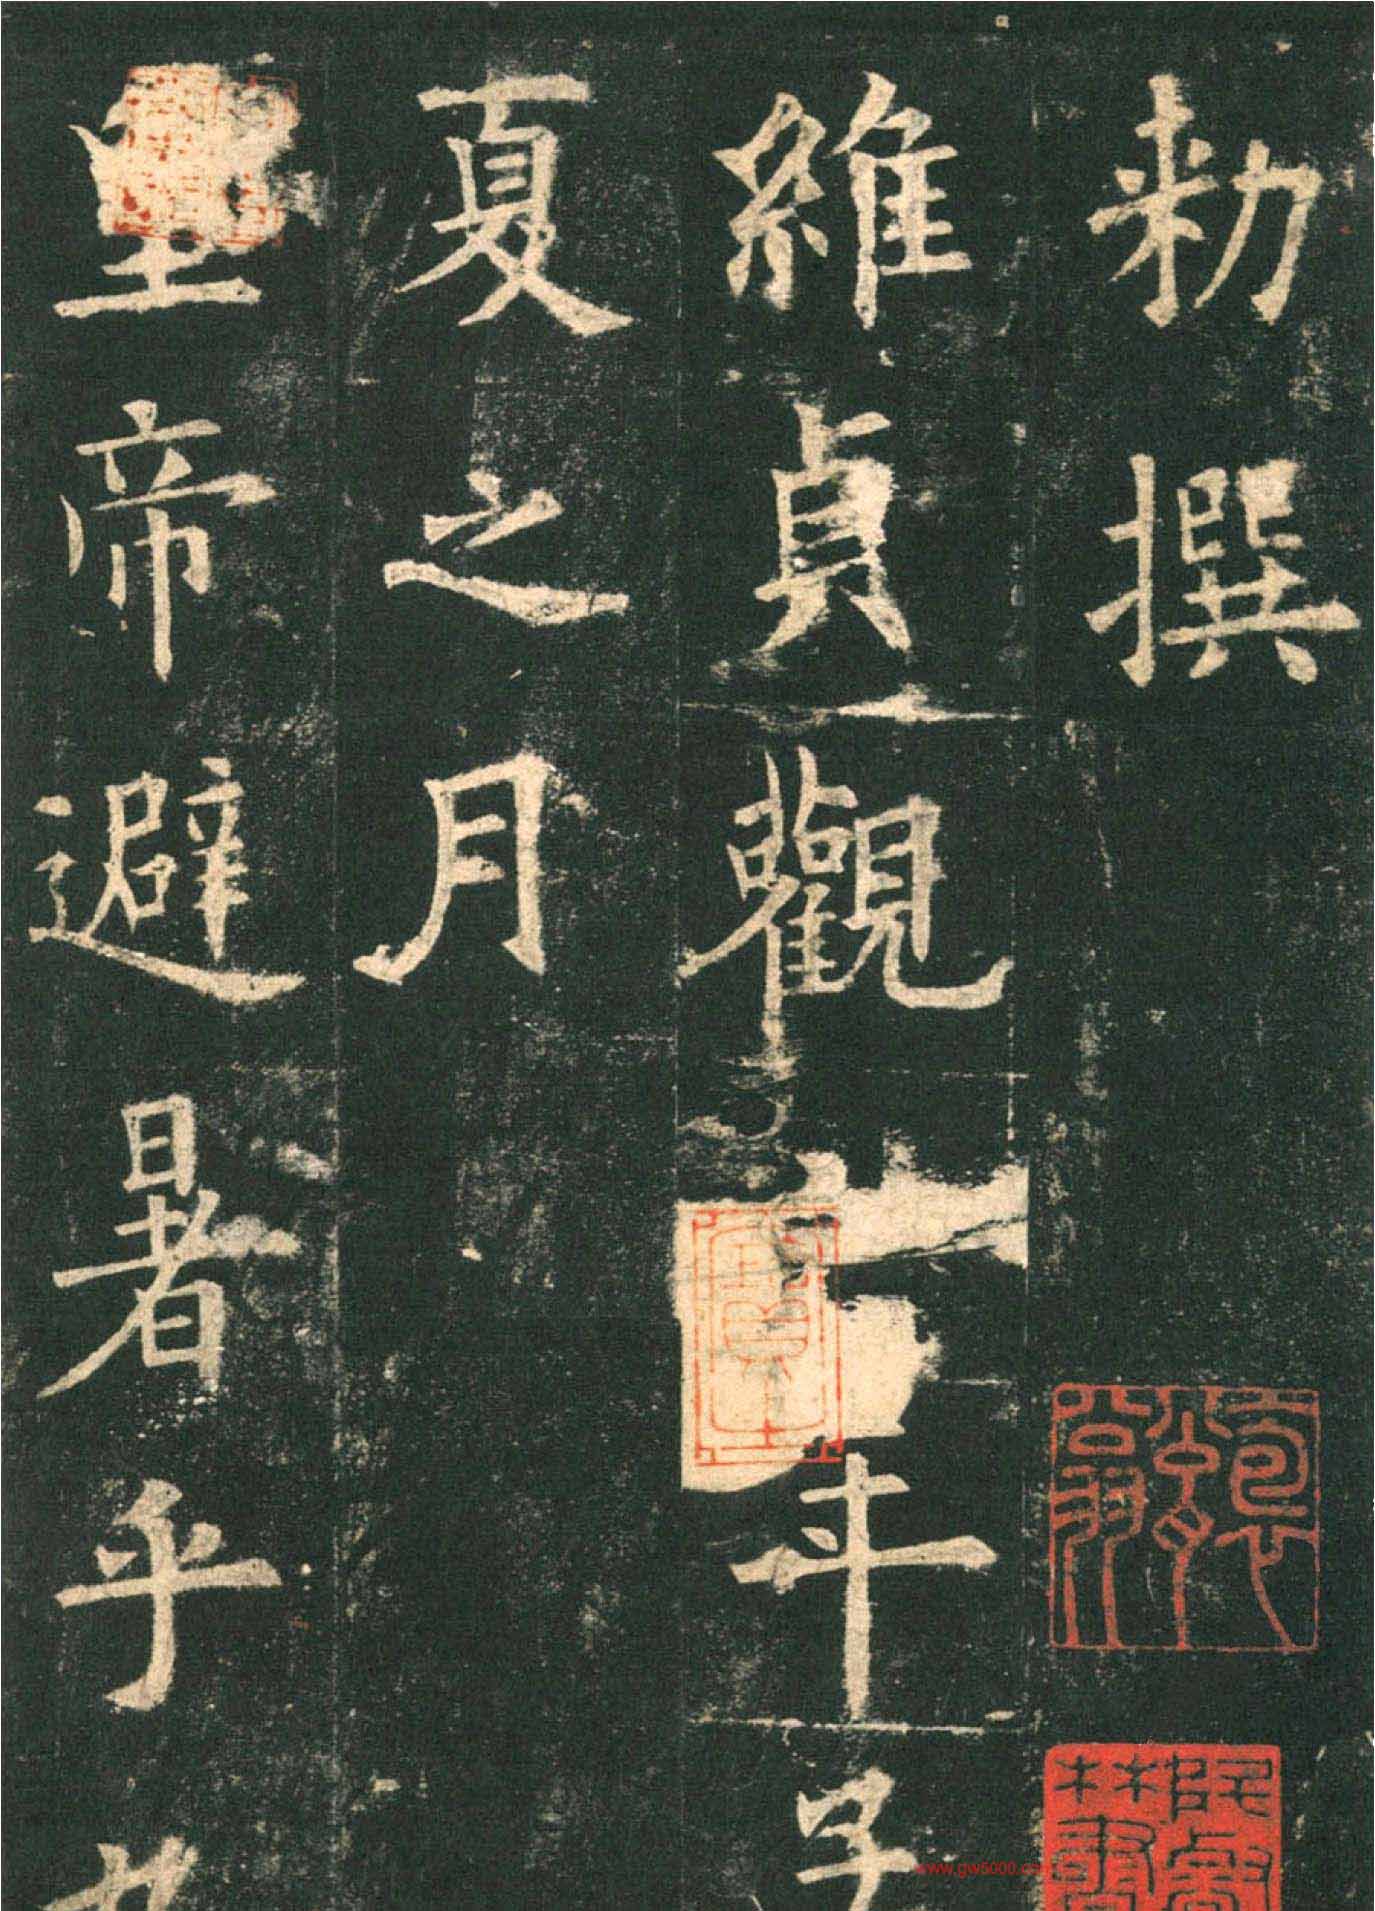 勅撰
維貞觀年孟
夏之月
皇帝避暑乎
www.gw5000.com